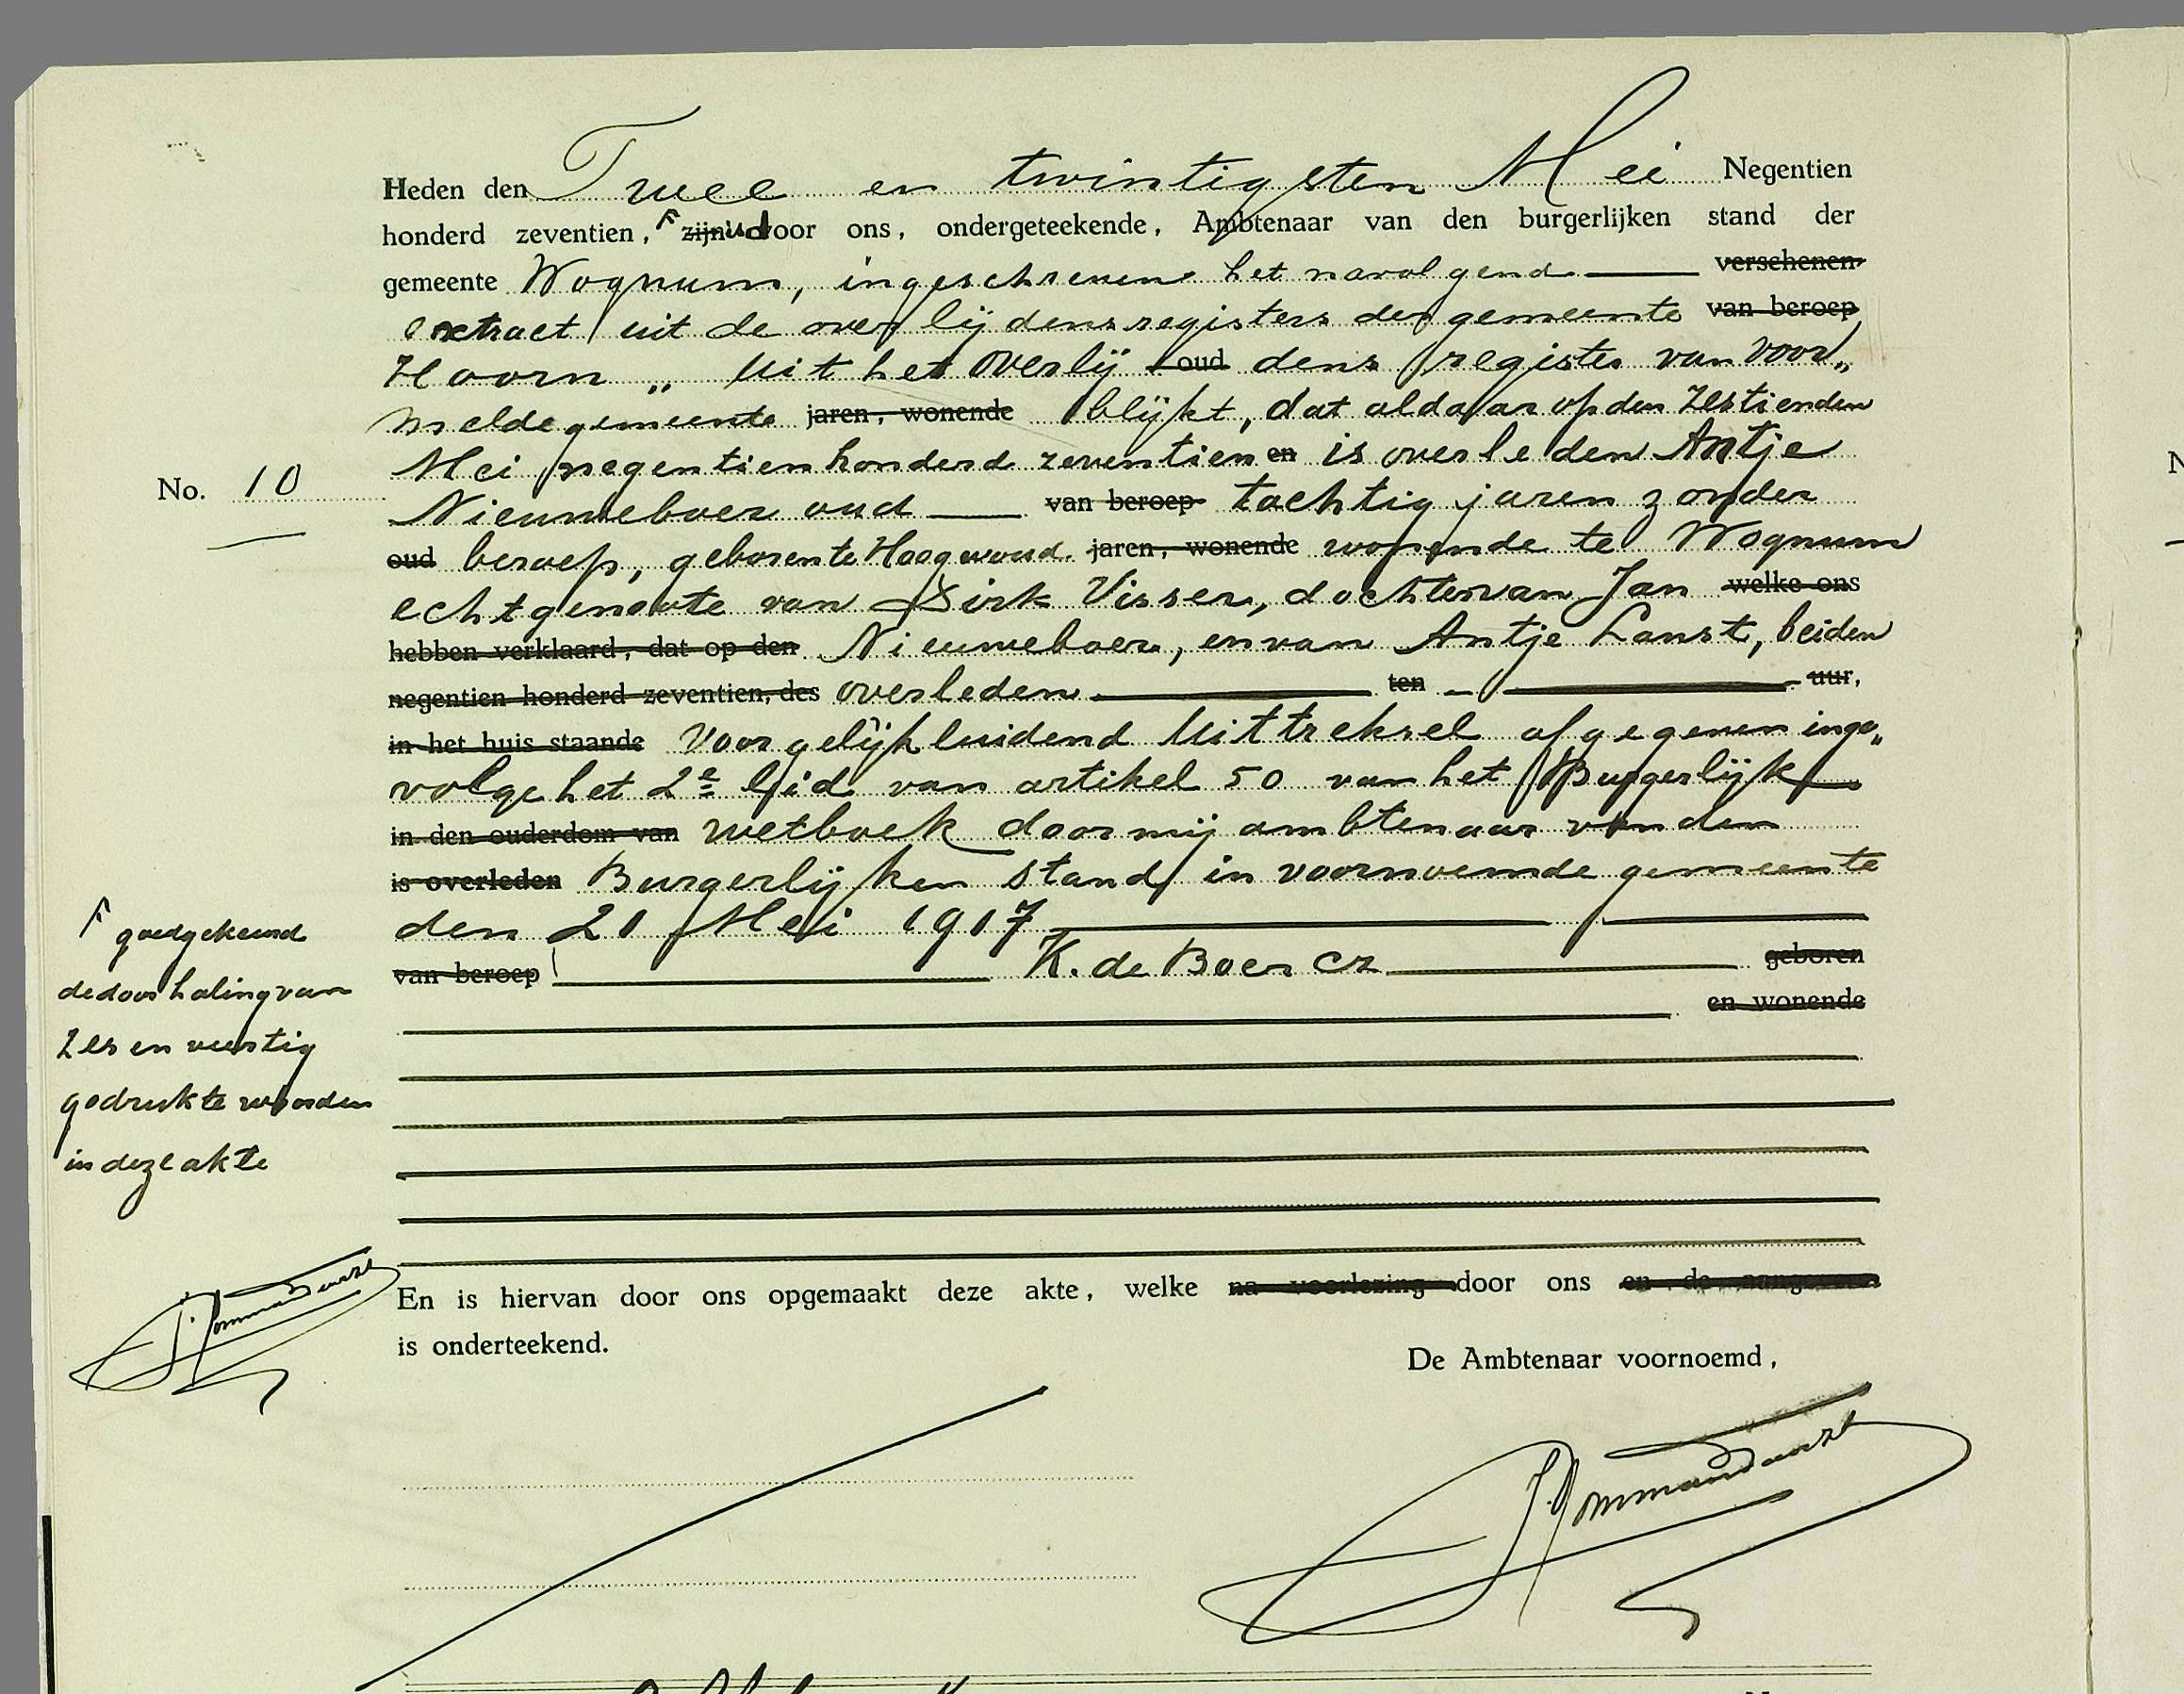 Heden den Twee en twintigsten Mei Negentien
honderd zeventien, F zijn is door ons, ondergeteekende, Ambtenaar van den burgerlijken stand der
gemeente Wognum, ingeschreven het navolgend verschenen
extract uit de overlijdensregisters der gemeente van beroep
Hoorn „ Uit het overlij oud dens register van voor„
melde gemeente jaren, wonende blijkt, dat aldaar op den zestienden
Mei negentienhonderd zeventien en is overleden Antje
No. 10
Nieuweboer oud van beroep tachtig jaren zonder
oud beroep, geboren te Hoogwoud jaren, wonende wonende te Wognum
echtgenoote van Dirk Visser, dochter van Jan welke ons
hebben verklaard, dat op den Nieuweboer, en van Antje Lanst, beiden
negentien honderd zeventien, des overleden ten uur,
in het huis staande Voor gelijkluidend Uittreksel afgegeven inge„
volge het 2e lid van artikel 50 van het Burgerlijk
in den ouderdom van wetboek door mij ambtenaar van den
is overleden Burgerlijken Stand in voornoemde gemeente
den 21 Mei 1917
van beroep K. de Boer Cz geboren
en wonende
F goedgekeurd
de doorhaling van
zes en veertig
gedrukte woorden
in deze akte
J. Commandeur
En is hiervan door ons opgemaakt deze akte, welke na voorlezing door ons en de aangevers
is onderteekend.
De Ambtenaar voornoemd,
J. Commandeur